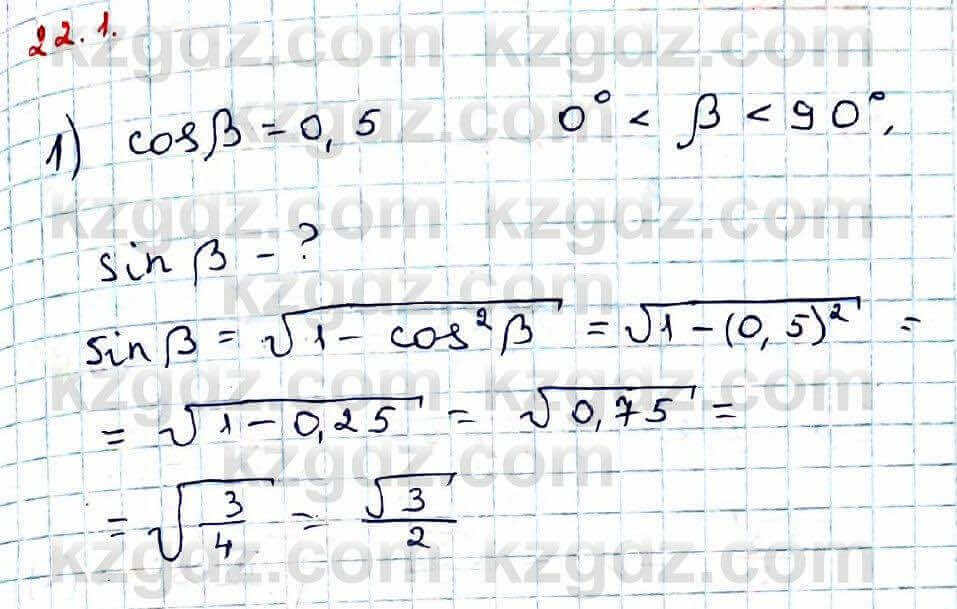 22.1.
1) cosβ = 0,5 0° < β < 90°,
sin β - ?
sin β = √(1 - cos²β) = √(1 - (0,5)²) =
= √(1 - 0,25) = √(0,75) =
= √(3/4) = √3/2
kzgdz.com kzgdz.com
kzgdz.com
kzgdz.com kzgdz.com
kzgdz.com
kzgdz.com kzgdz.com
kzgdz.com
kzgdz.com kzgdz.com